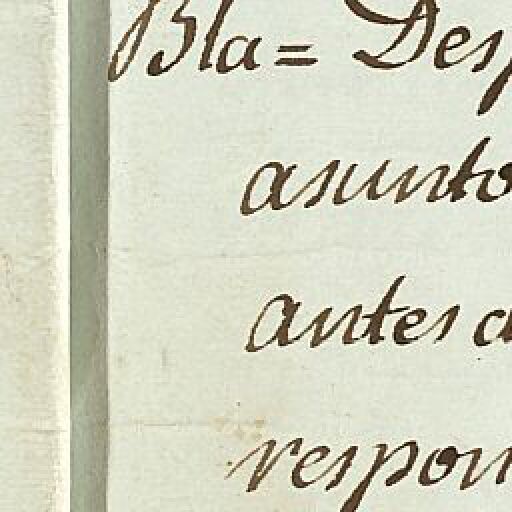 Bla= Desp
asunto
antes d
respon